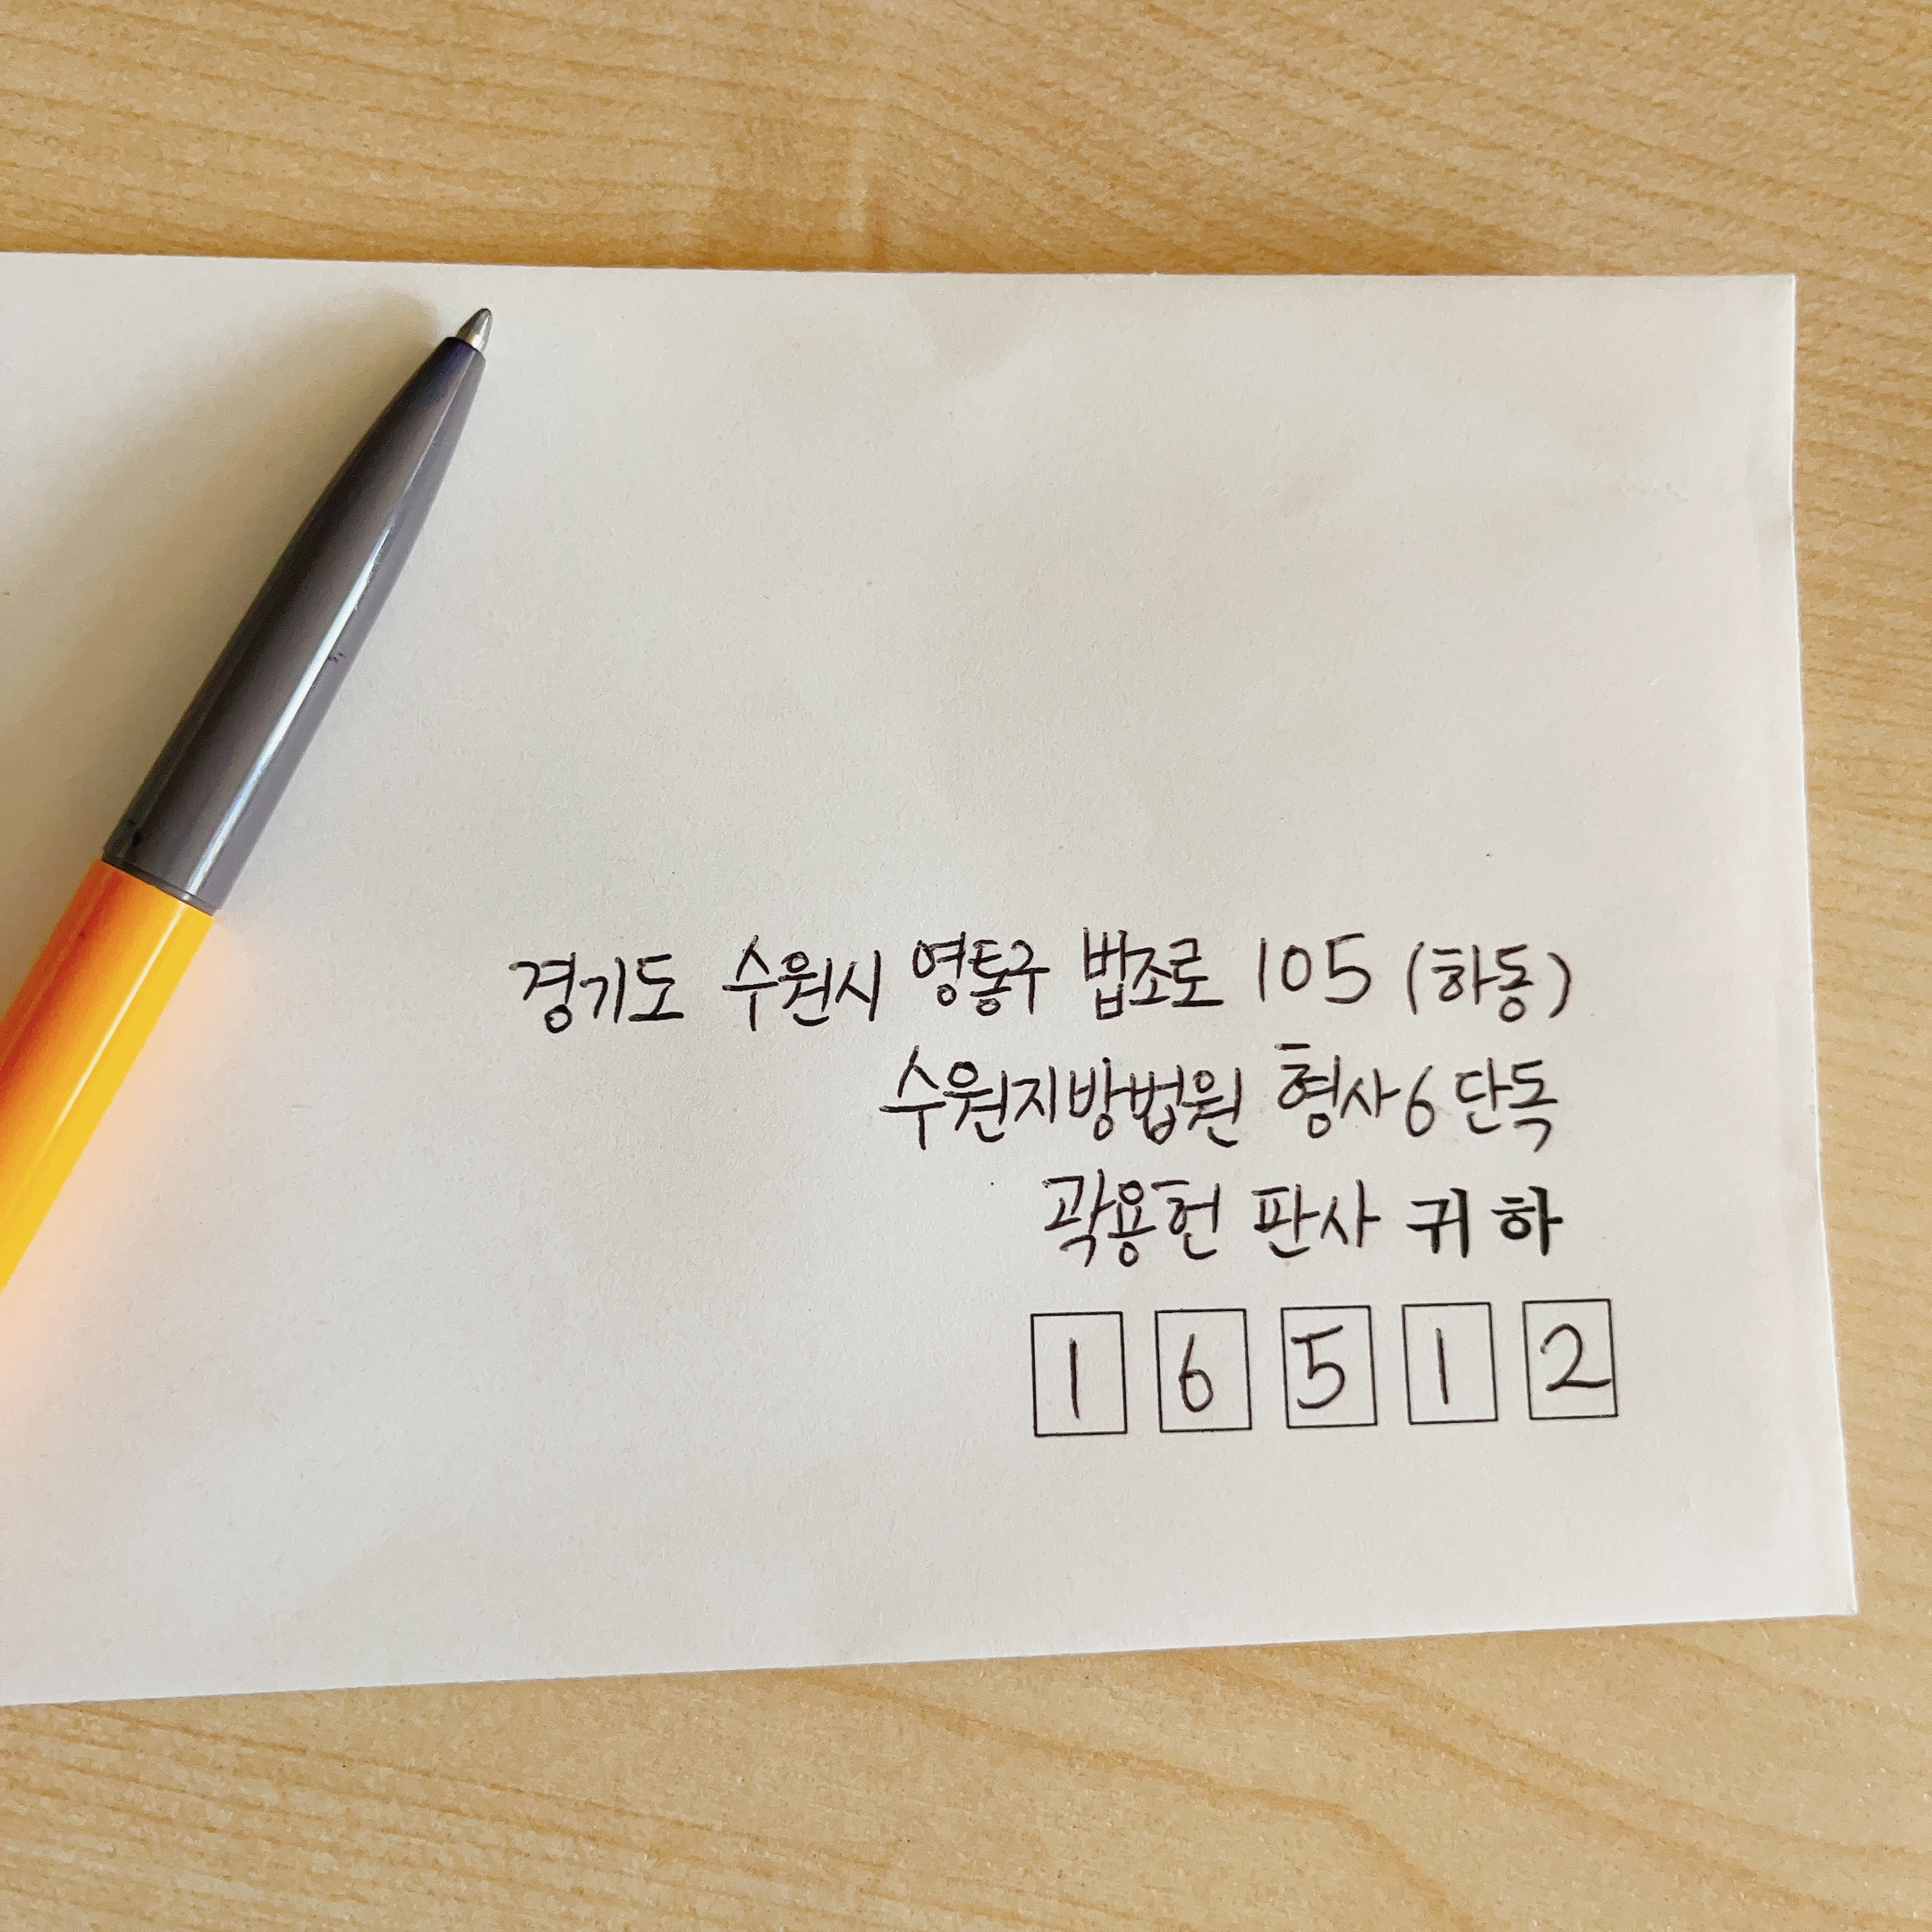 경기도 수원시 영통구 법조로 105 (하동)
수원지방법원 형사6단독
곽용헌 판사 귀하
16512